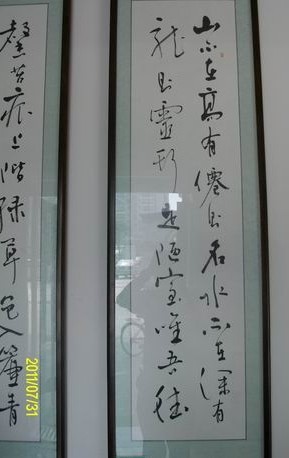 山不在高有僊則名水不在深有
龍則靈斯是陋室唯吾德
馨苔痕上階緑草色入簾青
2011/07/31